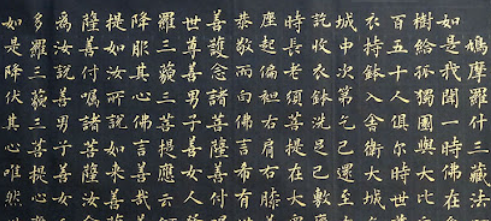 鳩摩羅什三藏法
如是我聞一時佛在
樹給孤獨園與大比
百五十人俱爾時世
衣持鉢入舍衛大城
城中次第乞已還至
訖收衣鉢洗足已敷
時長老須菩提在大
座起偏袒右肩右膝
恭敬而白佛言希有
善護念諸菩薩善付
世尊善男子善女人
羅三藐三菩提應云
降伏其心佛言善哉
提如汝所說如來善
薩善付囑諸菩薩汝
為汝說善男子善女
多羅三藐三菩提心
如是降伏其心唯然